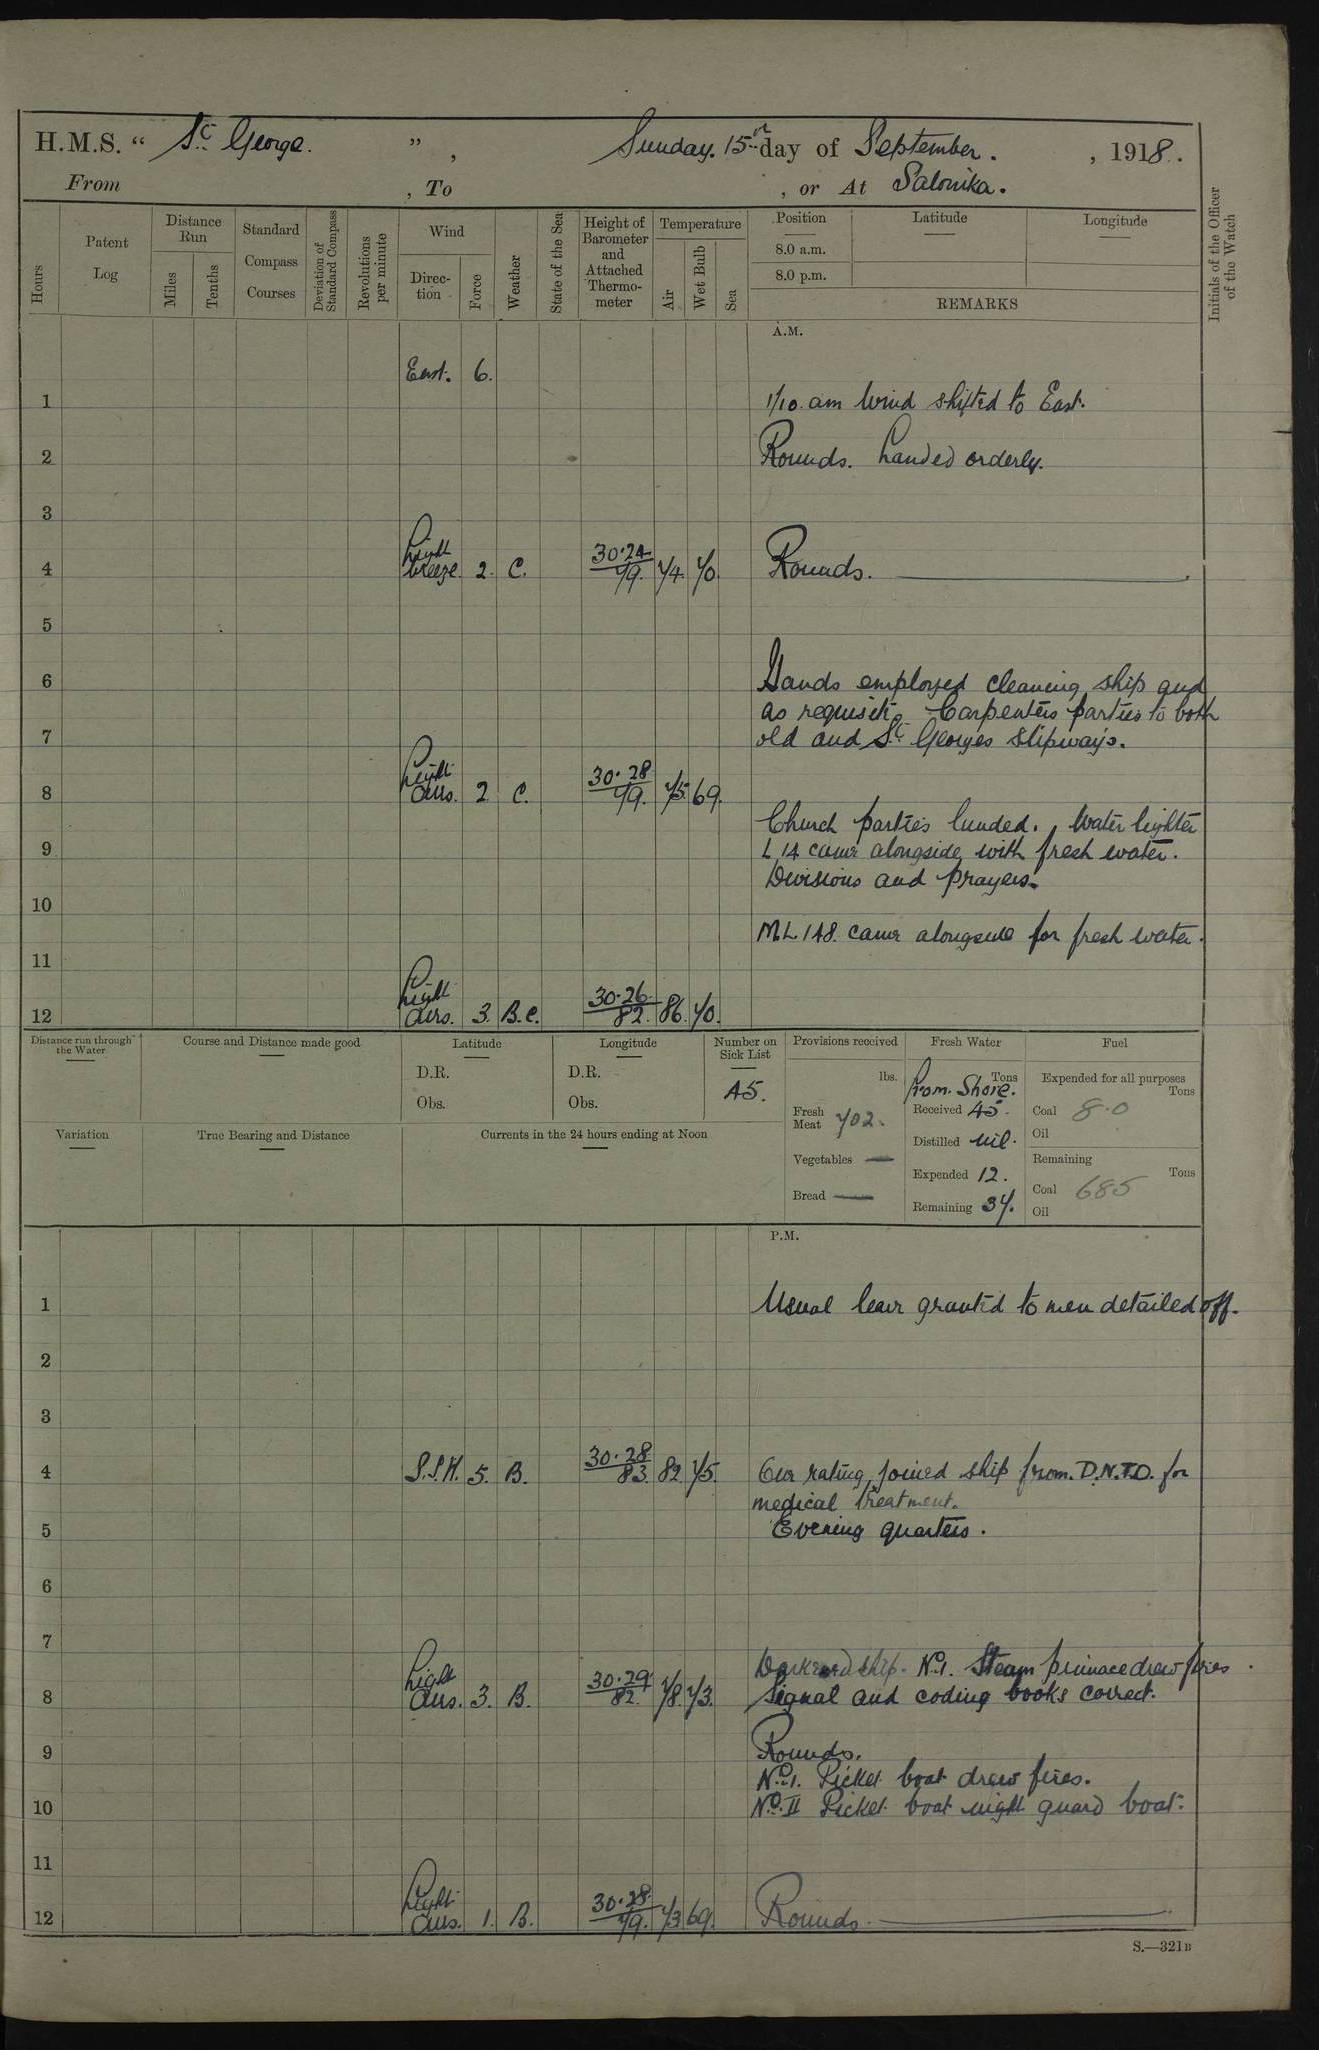 H.M.S. “ St George. ” , Sunday. 15th day of September. , 1918.
From , To , or At Salonika.
Hours
Patent Log
Distance Run
Miles
Tenths
Standard Compass Courses
Deviation of Standard Compass
Revolutions per minute
Wind
Direc-tion
Force
Weather
State of the Sea
Height of Barometer and Attached Thermo-meter
Temperature
Air
Wet Bulb
Sea
Position
8.0 a.m.
8.0 p.m.
Latitude
Longitude
REMARKS
Initials of the Officer of the Watch
A.M.
East. 6.
1 1/10. am Wind shifted to East.
2 Rounds. Landed orderly.
3
4 Light breeze 2. C. 30.24 79. 74. 70. Rounds.
5
6 Hands employed cleaning ship and
as requisite. Carpenters parties to both
7 old and St Georges Slipways.
8 Light airs. 2 C. 30.28 79. 75. 69.
Church parties landed. Water lighter
9 L 14 came alongside with fresh water.
Divisions and prayers.
10
ML 148. came alongside for fresh water.
11
12 Light airs. 3. B.C. 30.26 82. 86. 70.
Distance run through the Water
Course and Distance made good
Latitude
D.R.
Obs.
Longitude
D.R.
Obs.
Number on Sick List
45.
Provisions received
lbs.
Fresh Meat 702.
Vegetables —
Bread —
Fresh Water
Tons
From Shore.
Received 45.
Distilled nil.
Expended 12.
Remaining 37.
Fuel
Expended for all purposes
Tons
Coal 8.0
Oil
Remaining
Tons
Coal 685
Oil
Variation
True Bearing and Distance
Currents in the 24 hours ending at Noon
P.M.
1 Usual leave granted to men detailed off.
2
3
4 S.S.W. 5. B. 30.28 83. 82. 75. One rating joined ship from. D.N.T.O. for
medical treatment.
5 Evening quarters.
6
7
Darkened ship. No 1. Steam pinnace drew fires.
8 Light airs. 3. B. 30.29 82. 78. 73. Signal and coding books correct.
9 Rounds.
No 1. Picket boat drew fires.
10 No. II Picket boat night guard boat.
11
12 Light airs. 1. B. 30.28 79. 73 69. Rounds.
S.—321B